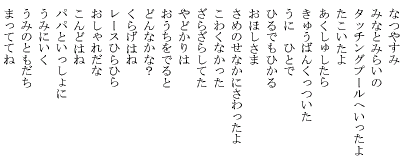 なつやすみ
みなとみらいの
タッチングプールへいったよ
たこいたよ
あくしゅしたら
きゅうばんくっついた
うに　ひとで
ひるでもひかる
おほしさま
さめのせなかにさわったよ
こわくなかった
ざらざらしてた
やどかりは
おうちをでると
どんなかな?
くらげはね
レースひらひら
おしゃれだな
こんどはね
パパといっしょに
うみにいく
うみのともだち
まっててね